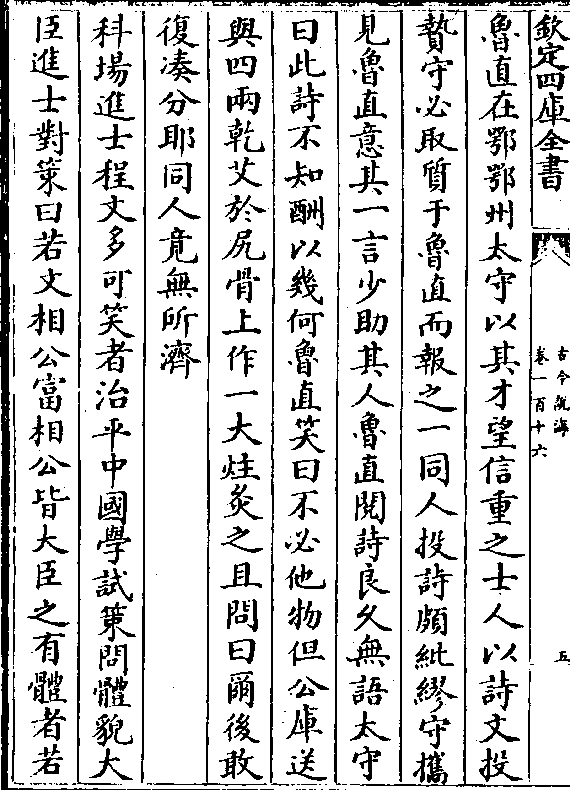 欽定四庫全書
古今說海
卷一百十六
五
魯直在鄂鄂州太守以其才望信重之士人以詩文投
贄守必取質于魯直而報之一同人投詩頗紕繆守攜
見魯直意其一言少助其人魯直閱詩良久無語太守
曰此詩不知酬以幾何魯直笑曰不必他物但公庫送
與四兩乾艾於尻骨上作一大炷灸之且問曰爾後敢
復凑分耶同人竟無所濟
科場進士程文多可笑者治平中國學試策問體貌大
臣進士對策曰若文相公富相公皆大臣之有體者若